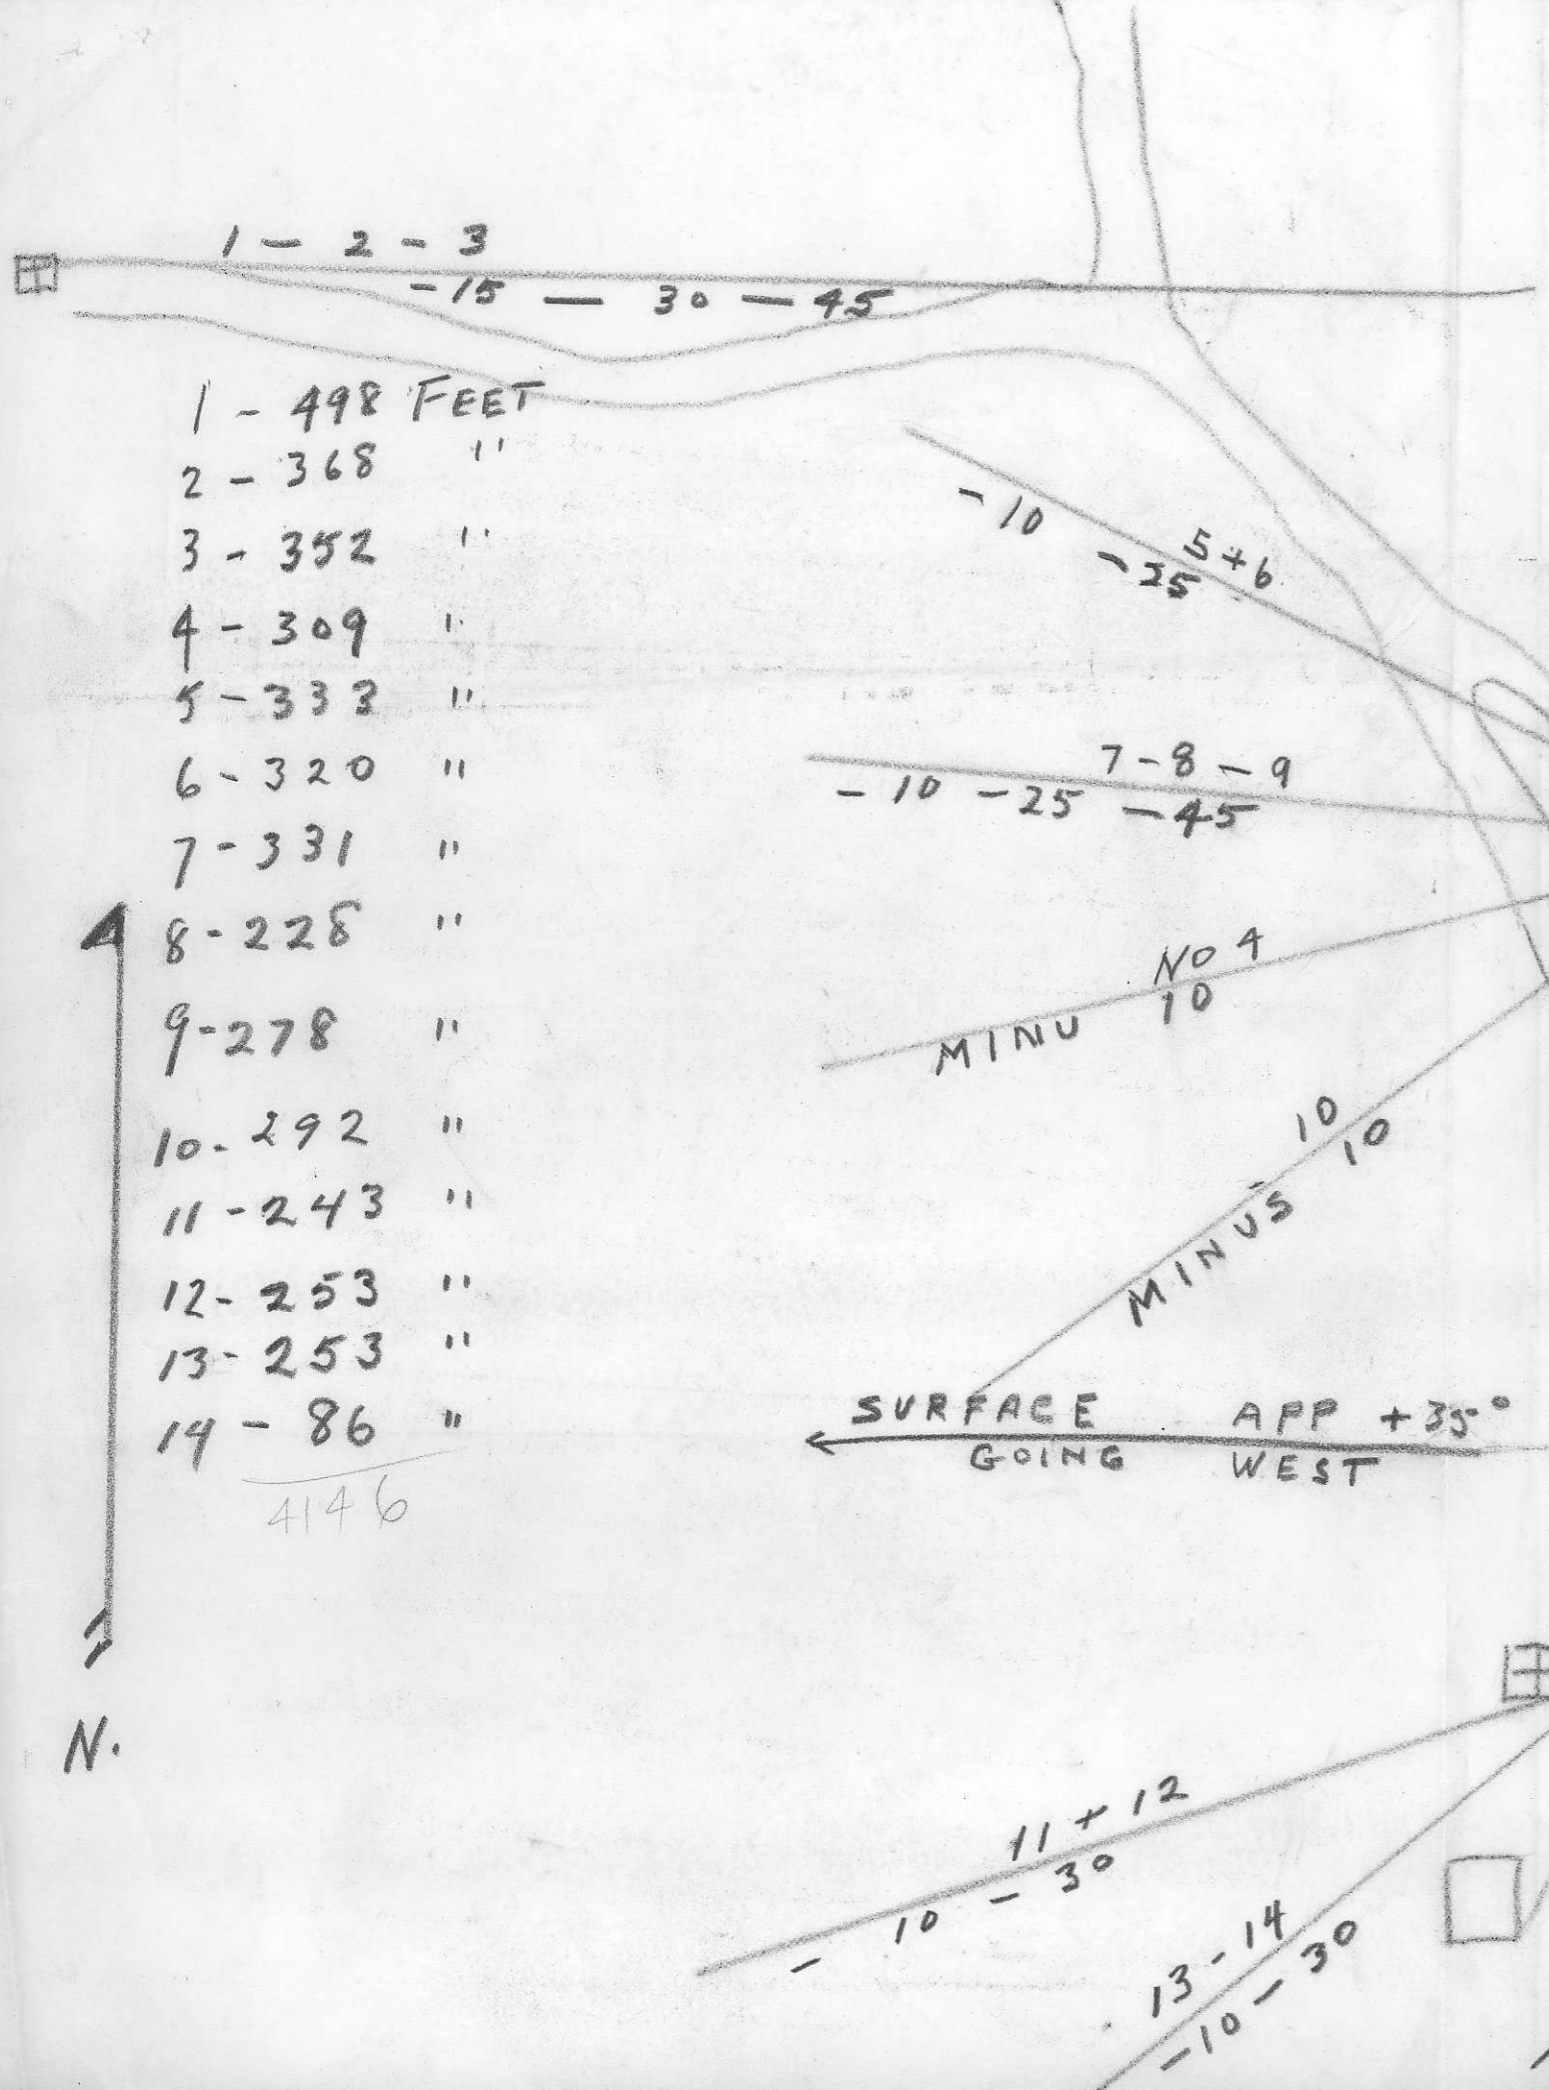 1 - 2 - 3
-15 - 30 - 45
1 - 498 FEET
2 - 368 "
3 - 352 "
4 - 309 "
5 - 333 "
6 - 320 "
7 - 331 "
8 - 228 "
9 - 278 "
10 - 292 "
11 - 243 "
12 - 253 "
13 - 253 "
14 - 86 "
4146
N.
5+6
-10 -25
7-8-9
-10 -25 -45
NO 4
MINU 10
10
MINUS 10
SURFACE APP +35°
GOING WEST
11 + 12
- 10 - 30
13 - 14
-10 - 30